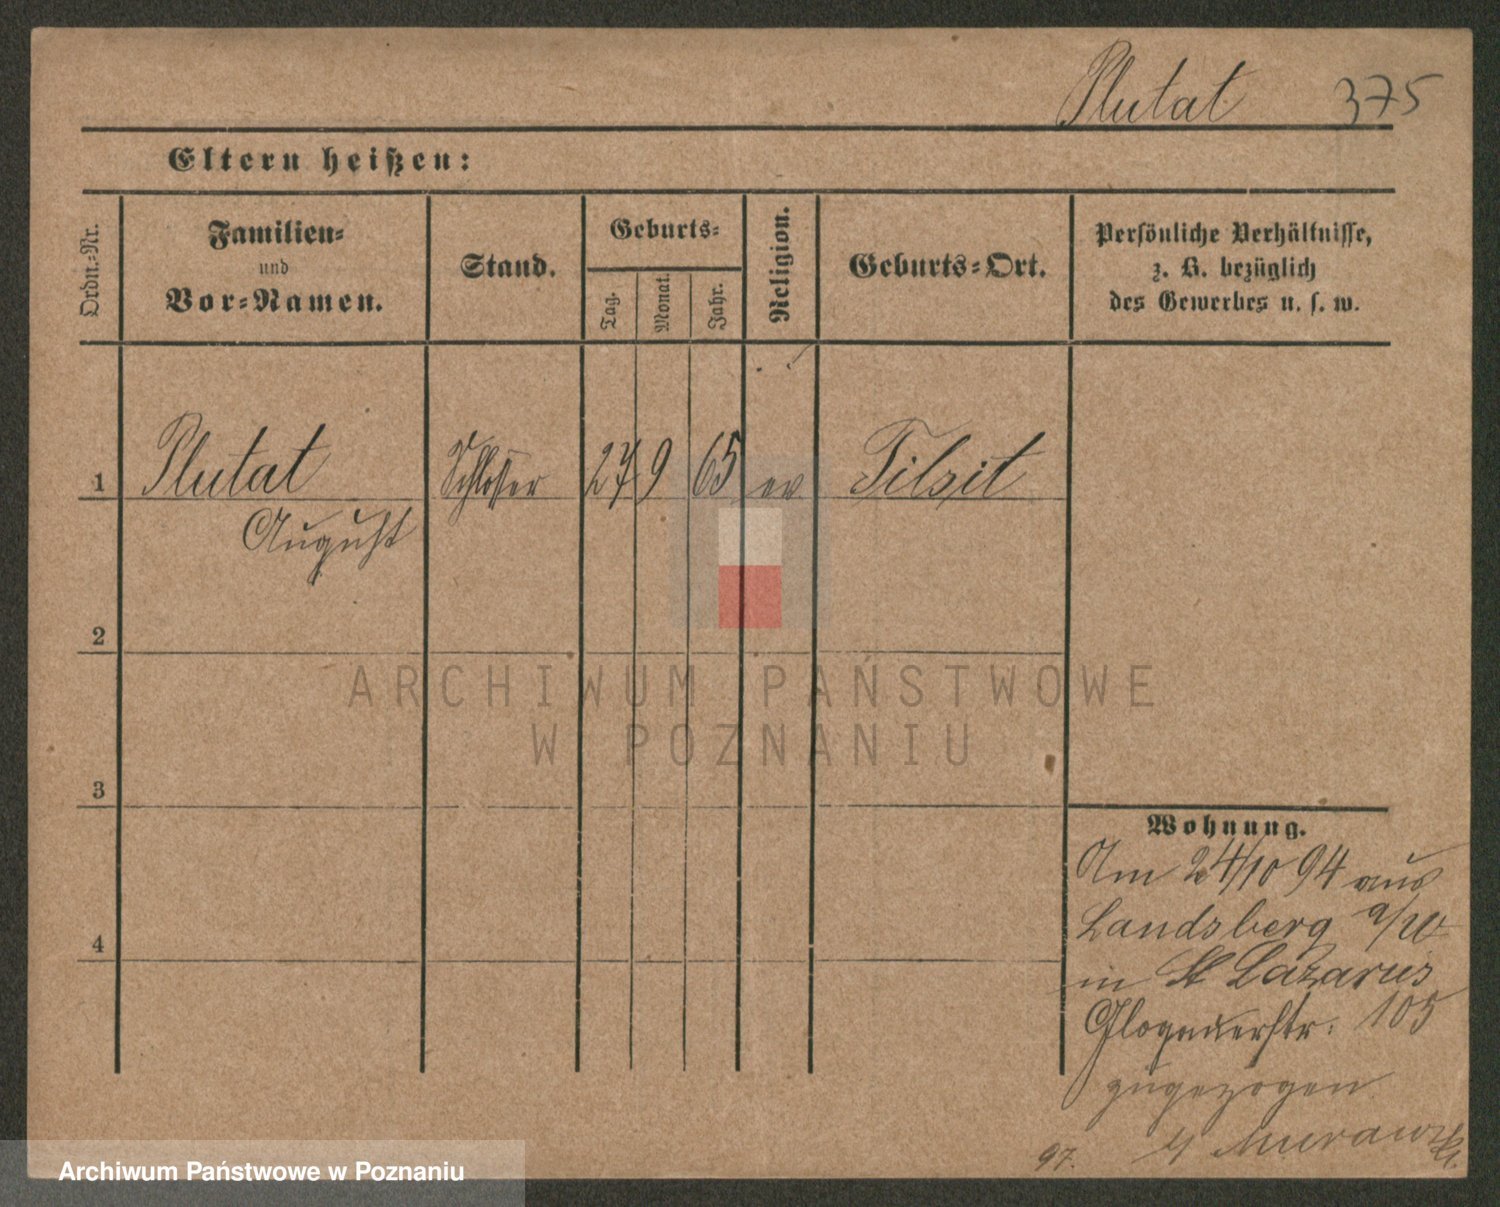 Plutat 375
Eltern heißen:
Ordn.-Nr.
Familien-
und
Vor-Namen.
Stand.
Geburts-
Tag.
Monat.
Jahr.
Religion.
Geburts-Ort.
Persönliche Verhältnisse,
z. B. bezüglich
des Gewerbes u. s. w.
1 Plutat Schlosser 27 9 65 ev Tilsit
August
2
3
4
Wohnung.
Am 24/10 94 aus
Landsberg a/W
in St Lazarus
Glogauerstr. 105
zugezogen
97.
ARCHIWUM PAŃSTWOWE
W POZNANIU
Archiwum Państwowe w Poznaniu